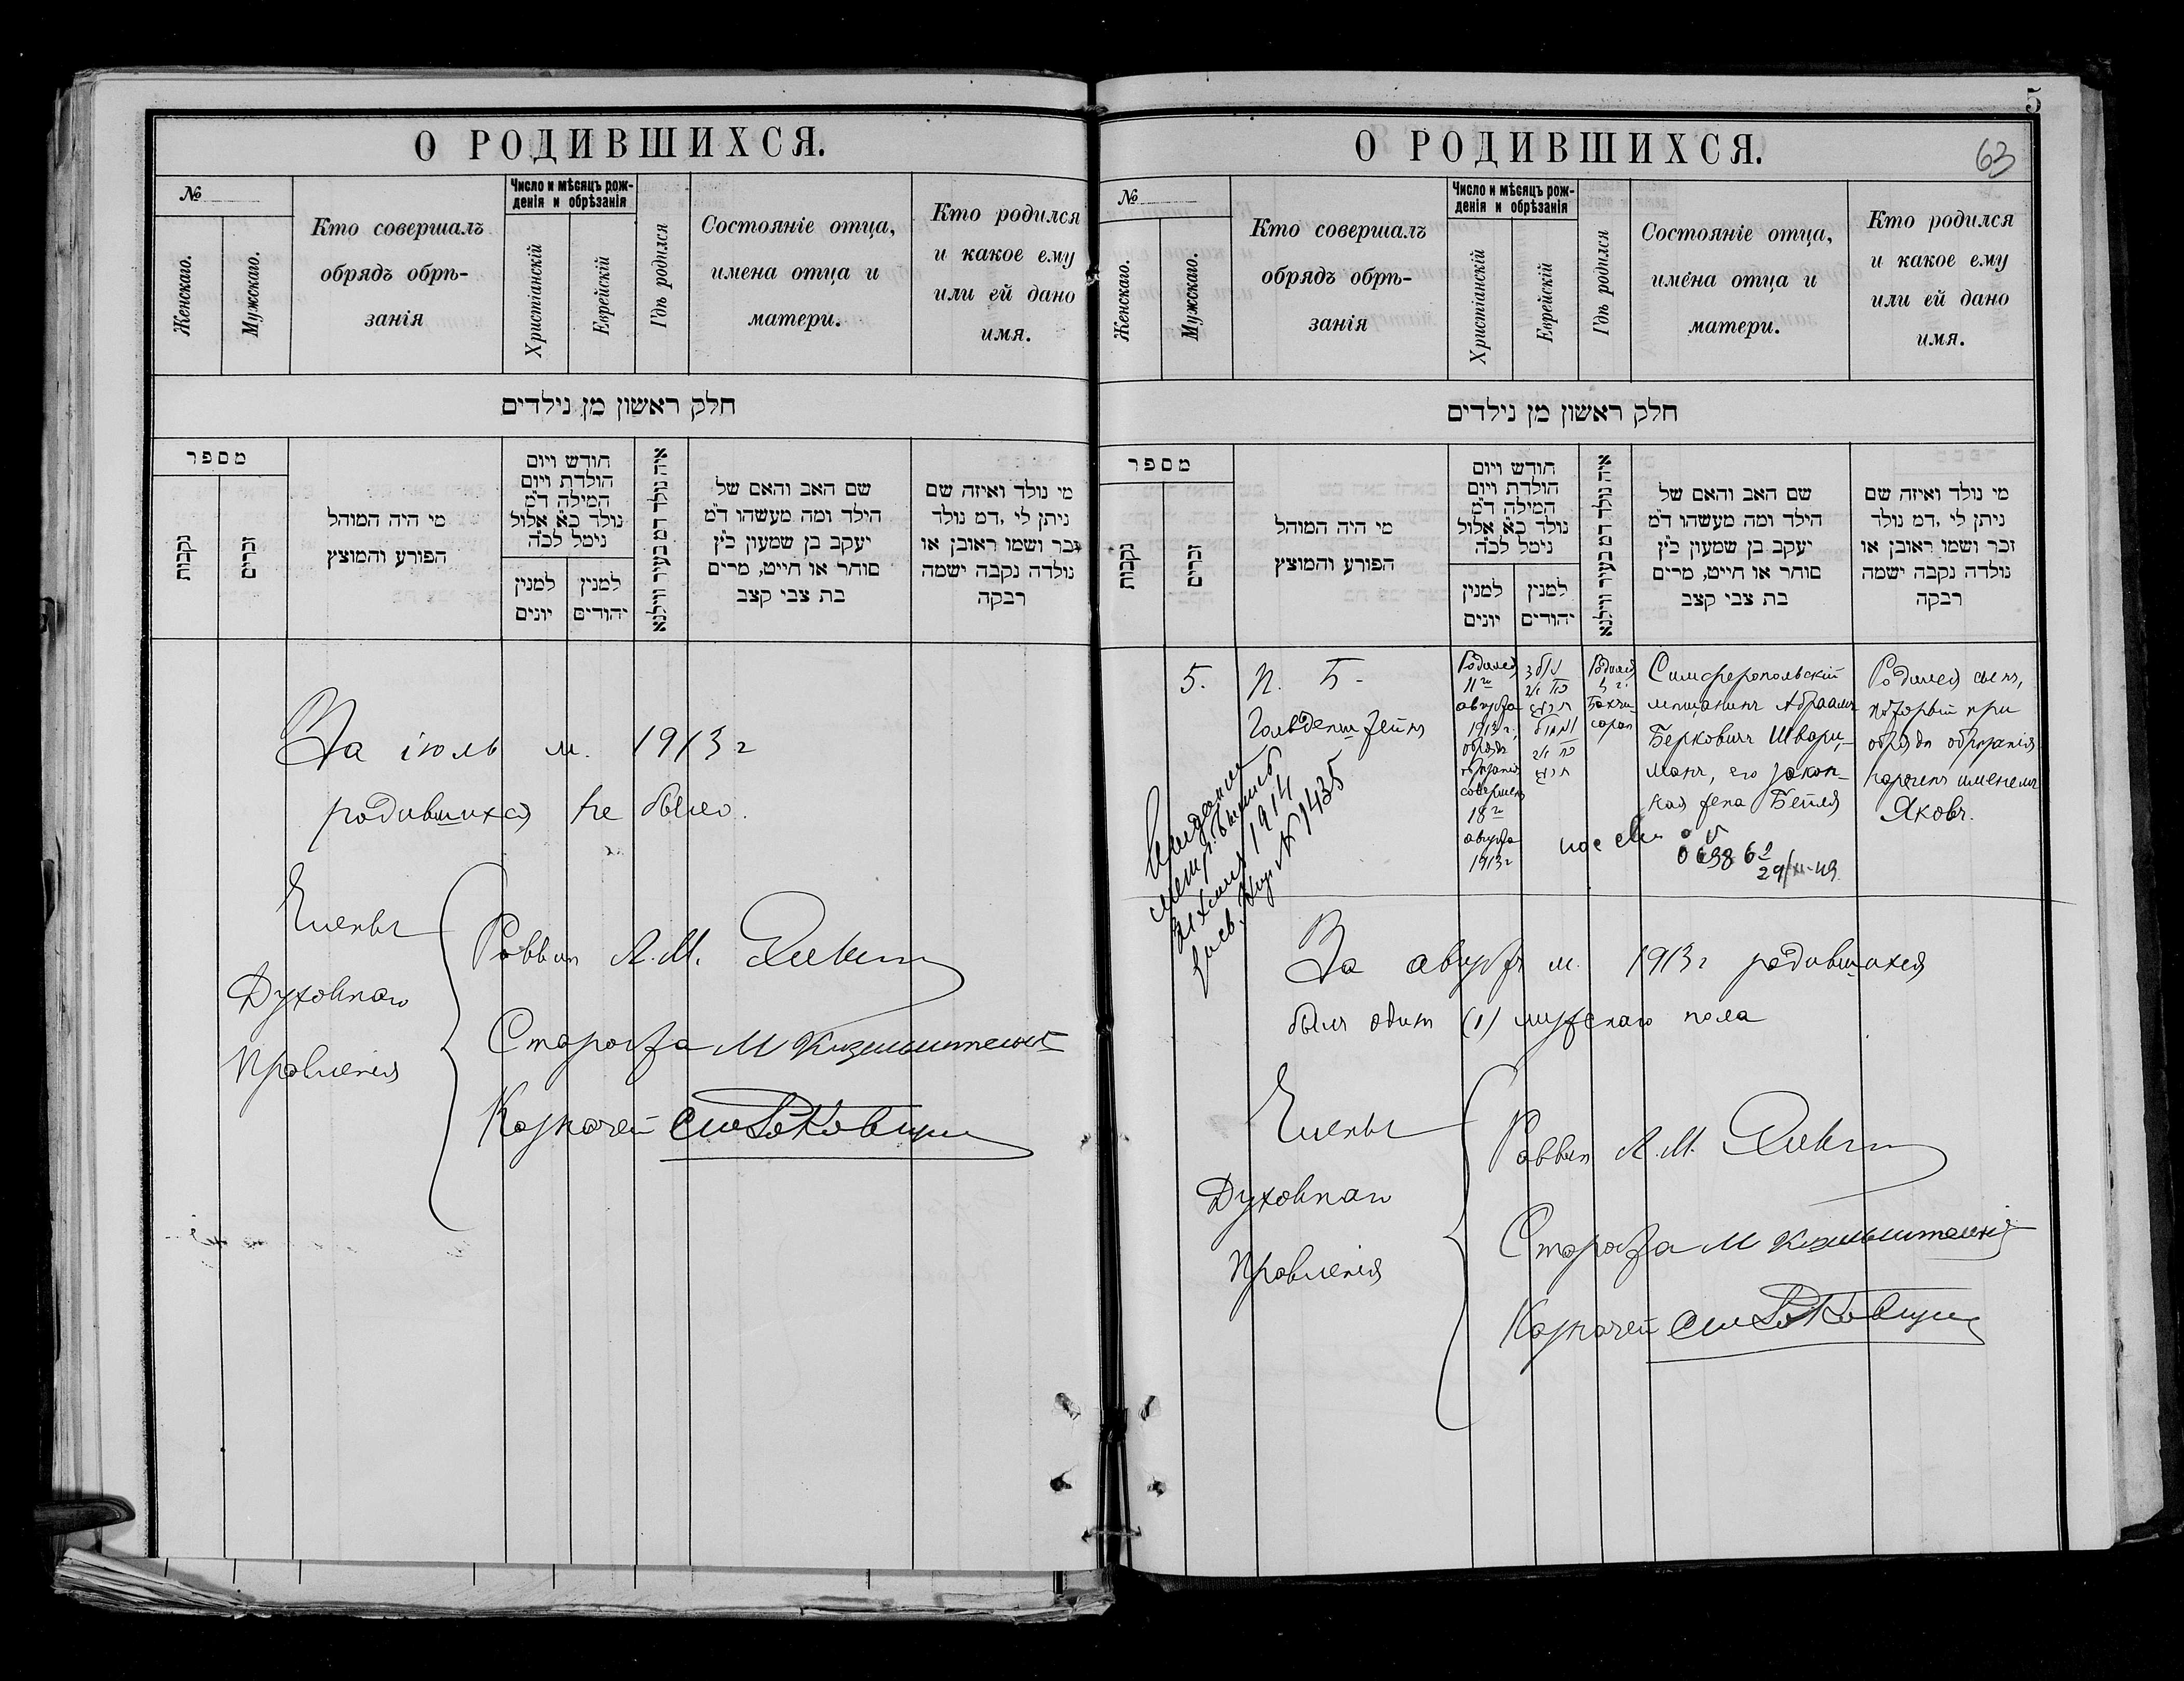 О РОДИВШИХСЯ.
№
Женскаго.
Мужскаго.
Кто совершалъ
обрядъ обрѣ-
занія
Число и мѣсяцъ рож-
денія и обрѣзанія
Христіанскій
Еврейскій
Гдѣ родился
Состояніе отца,
имена отца и
матери.
Кто родился
и какое ему
или ей дано
имя.
חלק ראשון מן נילדים
מספר
נקבות
זכרים
מי היה המוהל
הפורע והמוצץ
חודש ויום
הולדת ויום
המילה ד״מ
נולד כ״א אלול
נימל לכ״ה
למנין
יונים
למנין
יהודים
איה נולד דמ בעיר ווילנא
שם האב והאם של
הילד ומה מעשהו ד״מ
יעקב בן שמעון כ״ץ
סוחר או חייט, מרים
בת צבי קצב
מי נולד ואיזה שם
ניתן לי, דמ נולד
זכר ושמו ראובן או
נולדה נקבה ישמה
רבקה
За іюль м. 1913 г
родившихся не было.
Члены
Духовнаго
Правленія
Раввин А. М.
Староста М
Казначей
5
О РОДИВШИХСЯ.
63
№
Женскаго.
Мужскаго.
Кто совершалъ
обрядъ обрѣ-
занія
Число и мѣсяцъ рож-
денія и обрѣзанія
Христіанскій
Еврейскій
Гдѣ родился
Состояніе отца,
имена отца и
матери.
Кто родился
и какое ему
или ей дано
имя.
חלק ראשון מן נילדים
מספר
נקבות
זכרים
מי היה המוהל
הפורע והמוצץ
חודש ויום
הולדת ויום
המילה ד״מ
נולד כ״א אלול
נימל לכ״ה
למנין
יונים
למנין
יהודים
איה נולד דמ בעיר ווילנא
שם האב והאם של
הילד ומה מעשהו ד״מ
יעקב בן שמעון כ״ץ
סוחר או חייט, מרים
בת צבי קצב
מי נולד ואיזה שם
ניתן לי, דמ נולד
זכר ושמו ראובן או
נולדה נקבה ישמה
רבקה
5.
П. Б.
Гольденштейнъ
Родился
11го
августа
1913 г.,
обрядъ
обрѣзанія
совершенъ
18го
августа
1913 г
Родился
в г.
Бахчи-
сараѣ
Симферопольскій
мѣщанинъ Абраамъ
Берковичъ Шварц-
манъ, его закон-
ная жена Бейля
Родился сынъ,
который при
обрядѣ обрѣзанія
нареченъ именемъ
Яковъ.
1914
№ 1435
За августъ м. 1913 г родившихся
былъ одинъ (1) мужскаго пола
Члены
Духовнаго
Правленія
Раввин А. М.
Староста М
Казначей